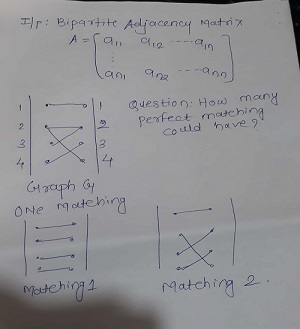 I/p: Bipartite Adjacency Matrix
A = [ a11 a12 ----- a1n
⋮
an1 an2 ---- ann ]
1 1
2 2
3 3
4 4
Question: How many
perfect matching
could have?
Graph G
ONe Matching
Matching 1
Matching 2.